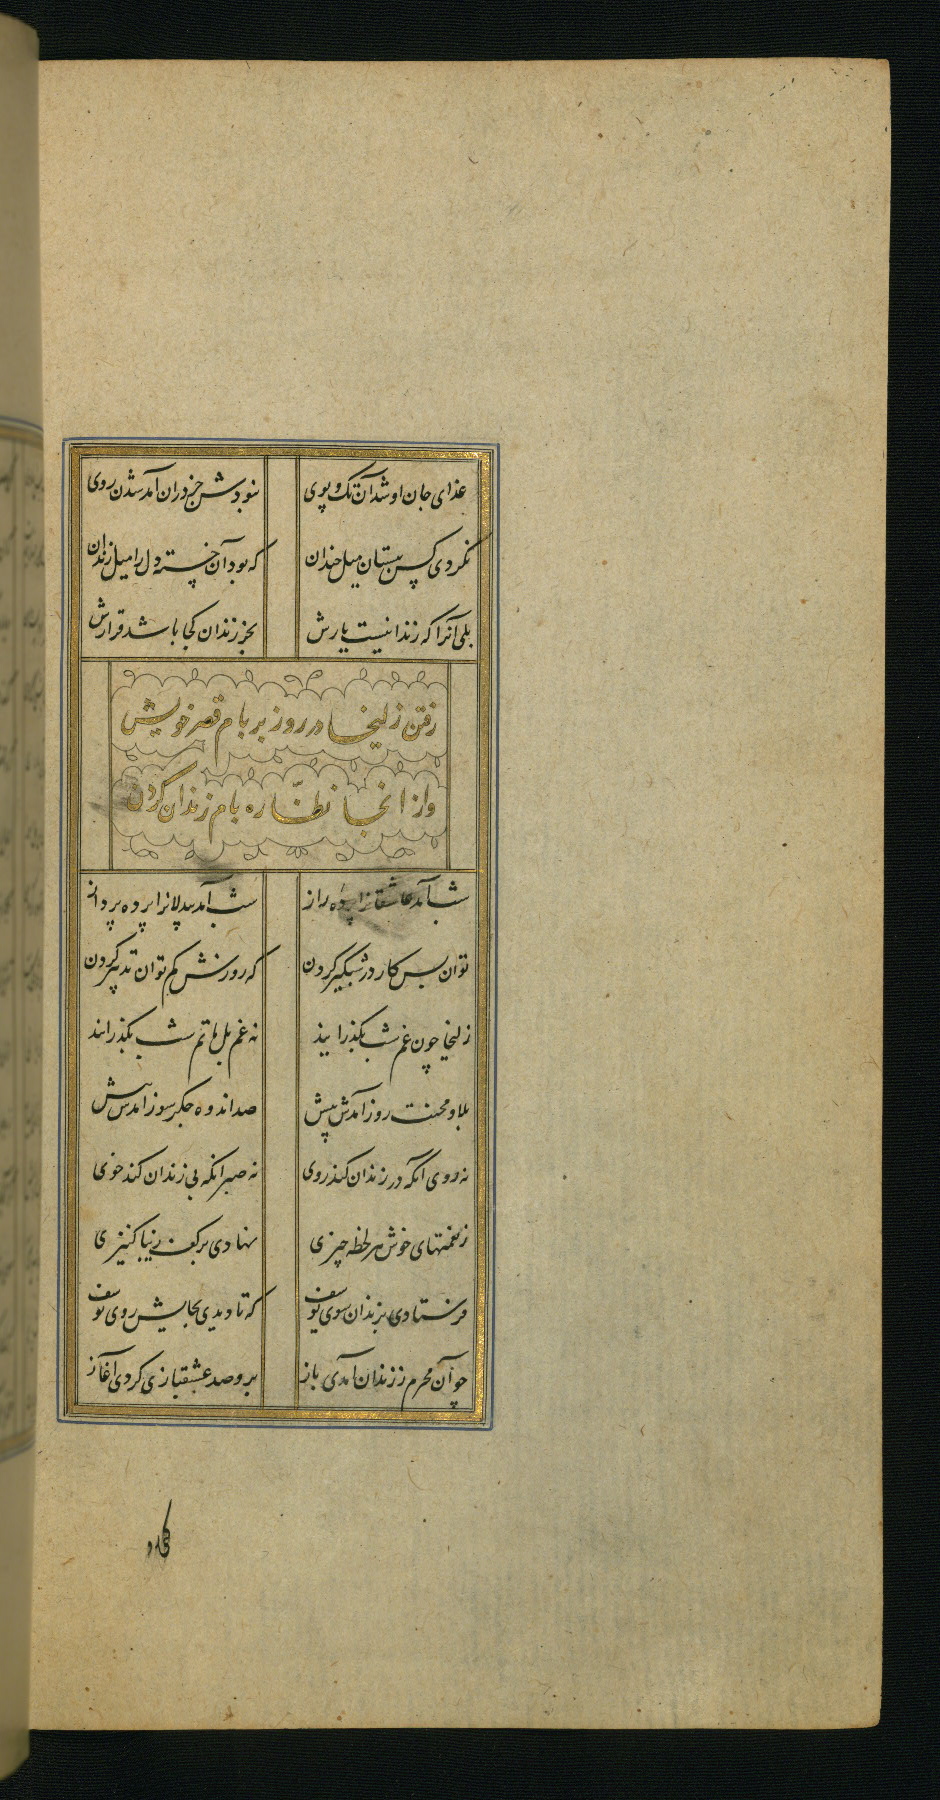 غذای جان او شد آن تک و پوی نبودش جز در آن آمد شدن روی
نکردی کس ببستان میل خندان که بود آن خسته دل را میل زندان
بلی آنرا که زندانیست یارش بجز زندان کجا باشد قرارش
رفتن زلیخا در روز بر بام قصر خویش
و از انجا نظاره بام زندان کردن
شب آمد عاشقانرا پرده راز شب آمد بیدلانرا پرده پرداز
توان بس کار در شبگیر کردن که روزش کم توان تدبیر کردن
زلیخا چون غم شب بگذرانید نه غم بل ماتم شب بگذرانید
بلا و محنت روز آمدش پیش صد اندوه جگر سوز آمدش پیش
نه روی آنکه در زندان کند روی نه صبر آنکه بی زندان کند خوی
ز نعمتهای خوش هر لحظه چیزی نهادی بر کف زیبا کنیزی
فرستادی بزندان سوی یوسف که تا دیدی بجایش روی یوسف
چو آن محرم ز زندان آمدی باز برو صد عشقبازی کردی آغاز